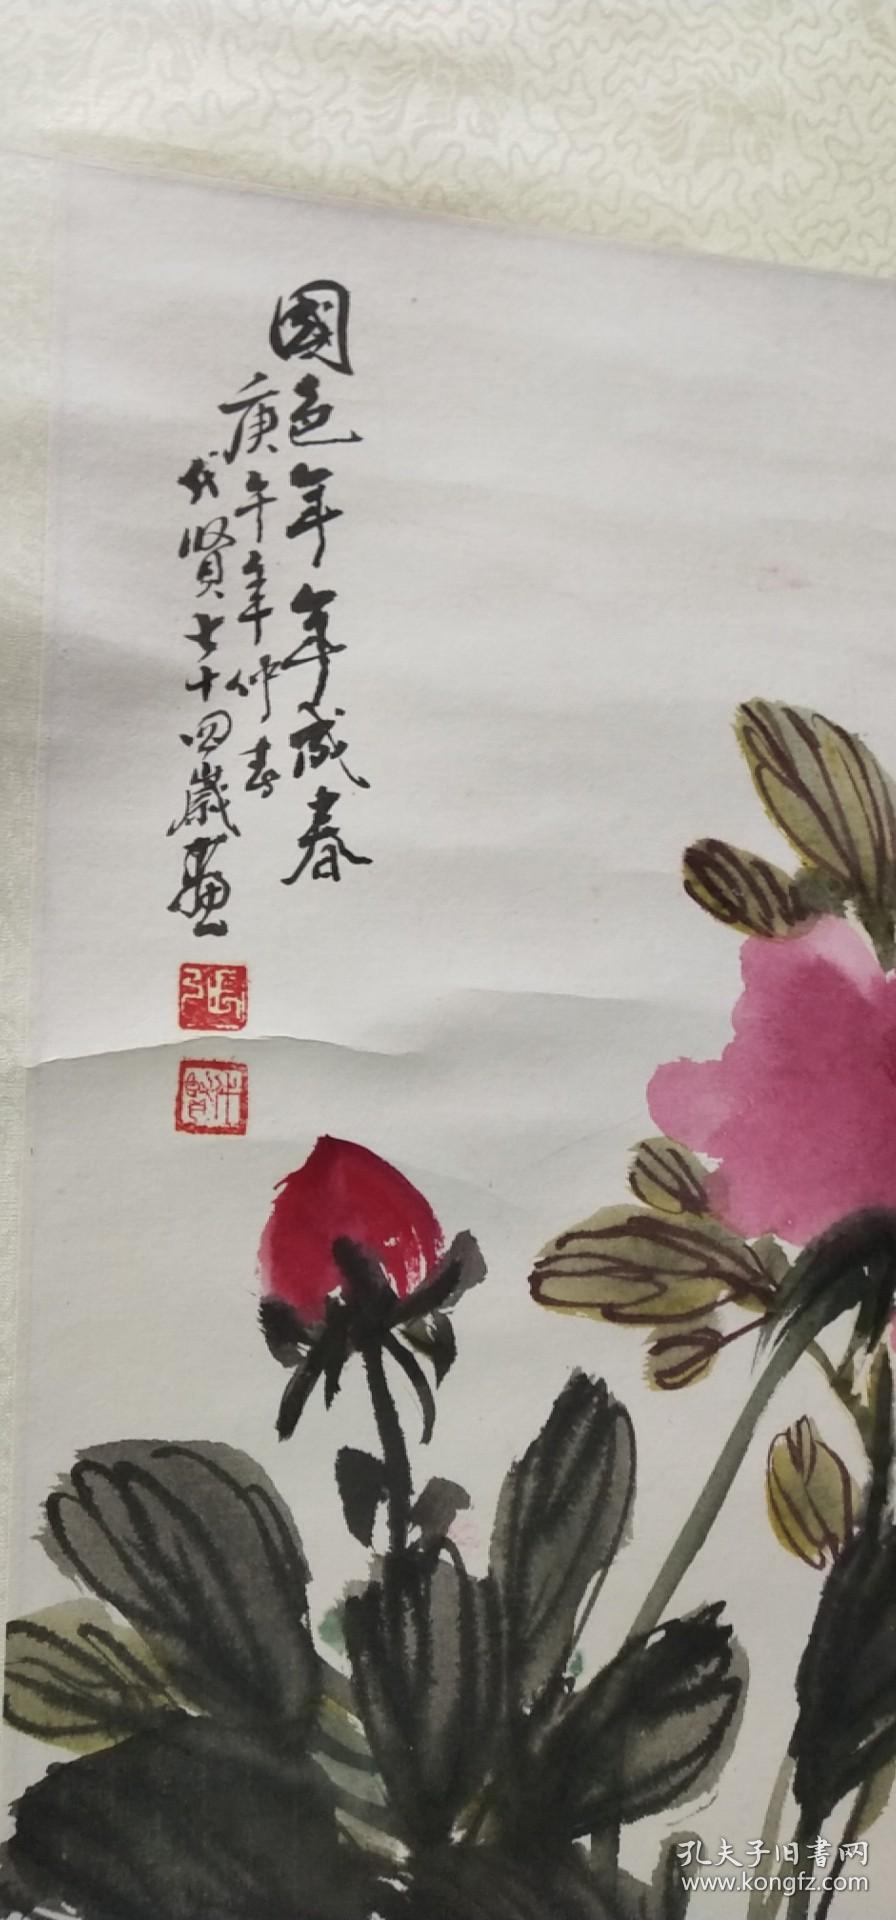 國色年年成春
庚午年仲春
代賢七十四歲畫
張
孔夫子旧書网
www.kongfz.com